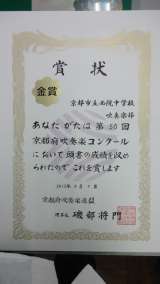 賞状
金賞
京都市立西院中学校
吹奏楽部
あなたがたは第50回
京都府吹奏楽コンクール
において頭書の成績を収め
られたのでこれを賞します
京都府吹奏楽連盟
理事長 磯部将門